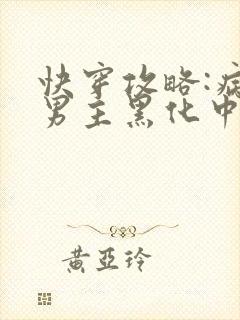 快穿攻略:病
男主黑化中
黄亞玲